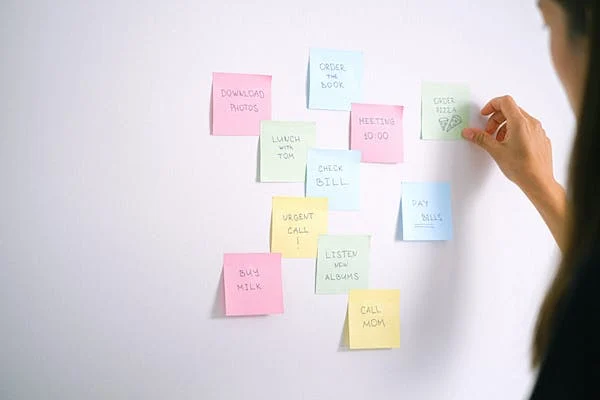 ORDER
THE
BOOK
DOWNLOAD
PHOTOS
ORDER
PIZZA
MEETING
10:00
LUNCH
WITH
TOM
CHECK
BILL
PAY
BILLS
URGENT
CALL
!
LISTEN
NEW
ALBUMS
BUY
MILK
CALL
MOM